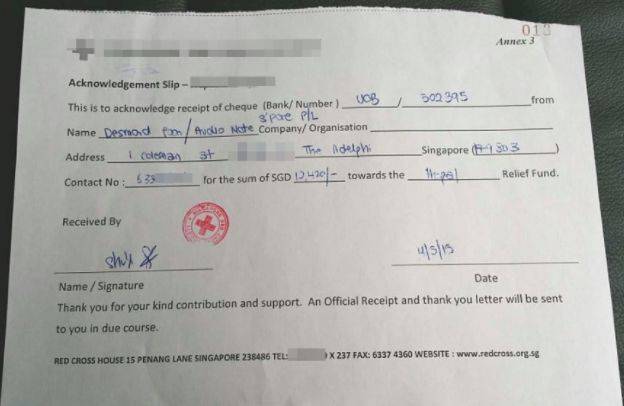 013
Annex 3
Acknowledgement Slip –
This is to acknowledge receipt of cheque (Bank/ Number ) UOB / 302395 from
S'pore P/L
Name Desmond / Audio Note Company/ Organisation
Address 1 Coleman St The Adelphi Singapore ( )
Contact No : 633 for the sum of SGD 12,420/- towards the Relief Fund.
Received By
Name / Signature
4/5/15
Date
Thank you for your kind contribution and support. An Official Receipt and thank you letter will be sent
to you in due course.
RED CROSS HOUSE 15 PENANG LANE SINGAPORE 238486 TEL: X 237 FAX: 6337 4360 WEBSITE : www.redcross.org.sg